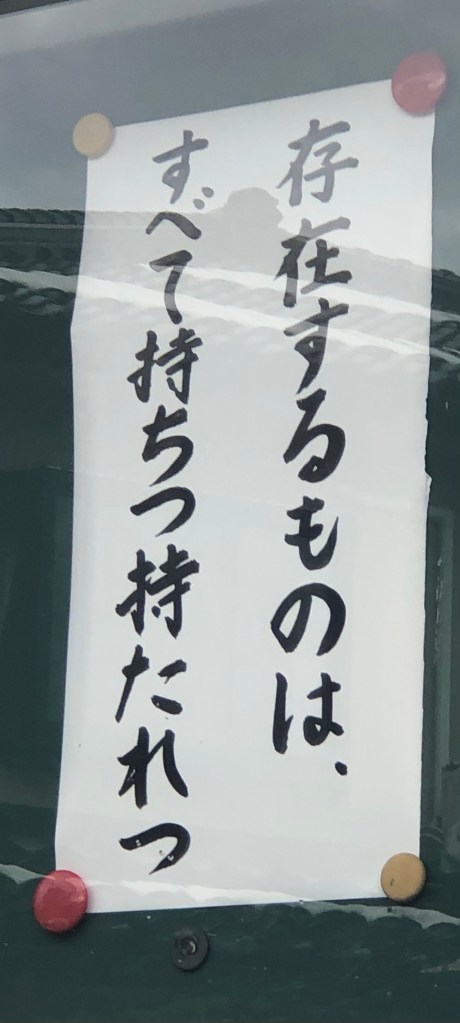 存在するものは、
すべて持ちつ持たれつ